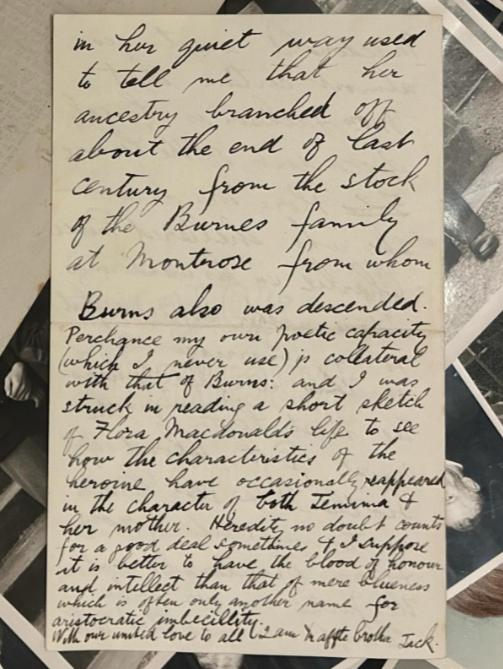 in her quiet way used
to tell me that her
ancestry branched off
about the end of last
century from the stock
of the Burnes family
at Montrose from whom
Burns also was descended.
Perchance my own poetic capacity
(which I never use) is collateral
with that of Burns: and I was
struck in reading a short sketch
of Flora Macdonald's life to see
how the characteristics of the
heroine have occasionally reappeared
in the character of both Jemima &
her mother. Heredity no doubt counts
for a good deal sometimes & I suppose
it is better to have the blood of honour
and intellect than that of mere blueness
which is often only another name for
aristocratic imbecillity.
With our united love to all I am yr affte brother Jack.